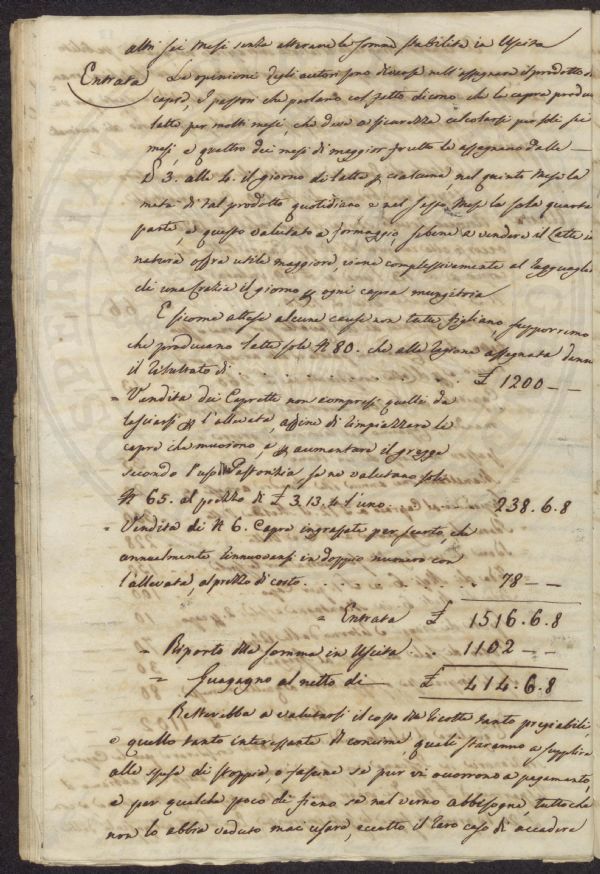 altri sei Mesi senza alterare la somma stabilita in Uscita
Entrata Le opinioni degli autori sono diverse nell'assegnare il prodotto di
capra, I pastori che parlano col fatto dicono che la capra produce
latte per molti mesi, che deve a sicurezza calcolarsi per soli sei
mesi, e quattro dei mesi di maggior frutto le assegnano dalle
£ 3. alle 4. il giorno di latte p ciascuna, nel quinto Mese la
metà di tal prodotto quotidiano e nel sesto Mese la sola quarta
parte, e questo valutato a formaggio sebene a vendere il Latte in
natura offra utile maggiore, viene complessivamente al ragguaglio
di una Crazia il giorno, p ogni capra mungitoria
E sicome attese alcune cause non tutte figliano supporremo
che producano latte sole N 80. che alla ragione assegnata danno
il resultato di . . . £ 1200 — —
= Vendita dei Capretti non compresi quelli da
lasciarsi p l'allevata, affine di rimpiazzare le
capre che muorono, e p aumentare il gregge
secondo l'uso di Pastorizia se ne valutano soli
N 65. al prezzo di £ 3.13.4 l'uno 238. 6. 8
= Vendita di N 6. Capre ingrassate per scarto, che
annualmente rinnuovansi in doppio numero con
l'allevata, al prezzo di costo . . . 78 — —
= Entrata £ 1516. 6. 8
= Riporto della somma in Uscita . . 1102 — —
= Guagagno al netto di — £ 414. 6. 8
Resterebbe a valutarsi il costo delle ricotte tanto pregiabili,
e quello tanto interessante di concime quali staranno a supplire
alle spese di stoppie, o fascine se pur vi occorrono a pagamento,
e per qualche poco di fieno se nel verno abbisogna, tutto che
non lo abbia veduto mai usare, eccetto il raro caso di accadere